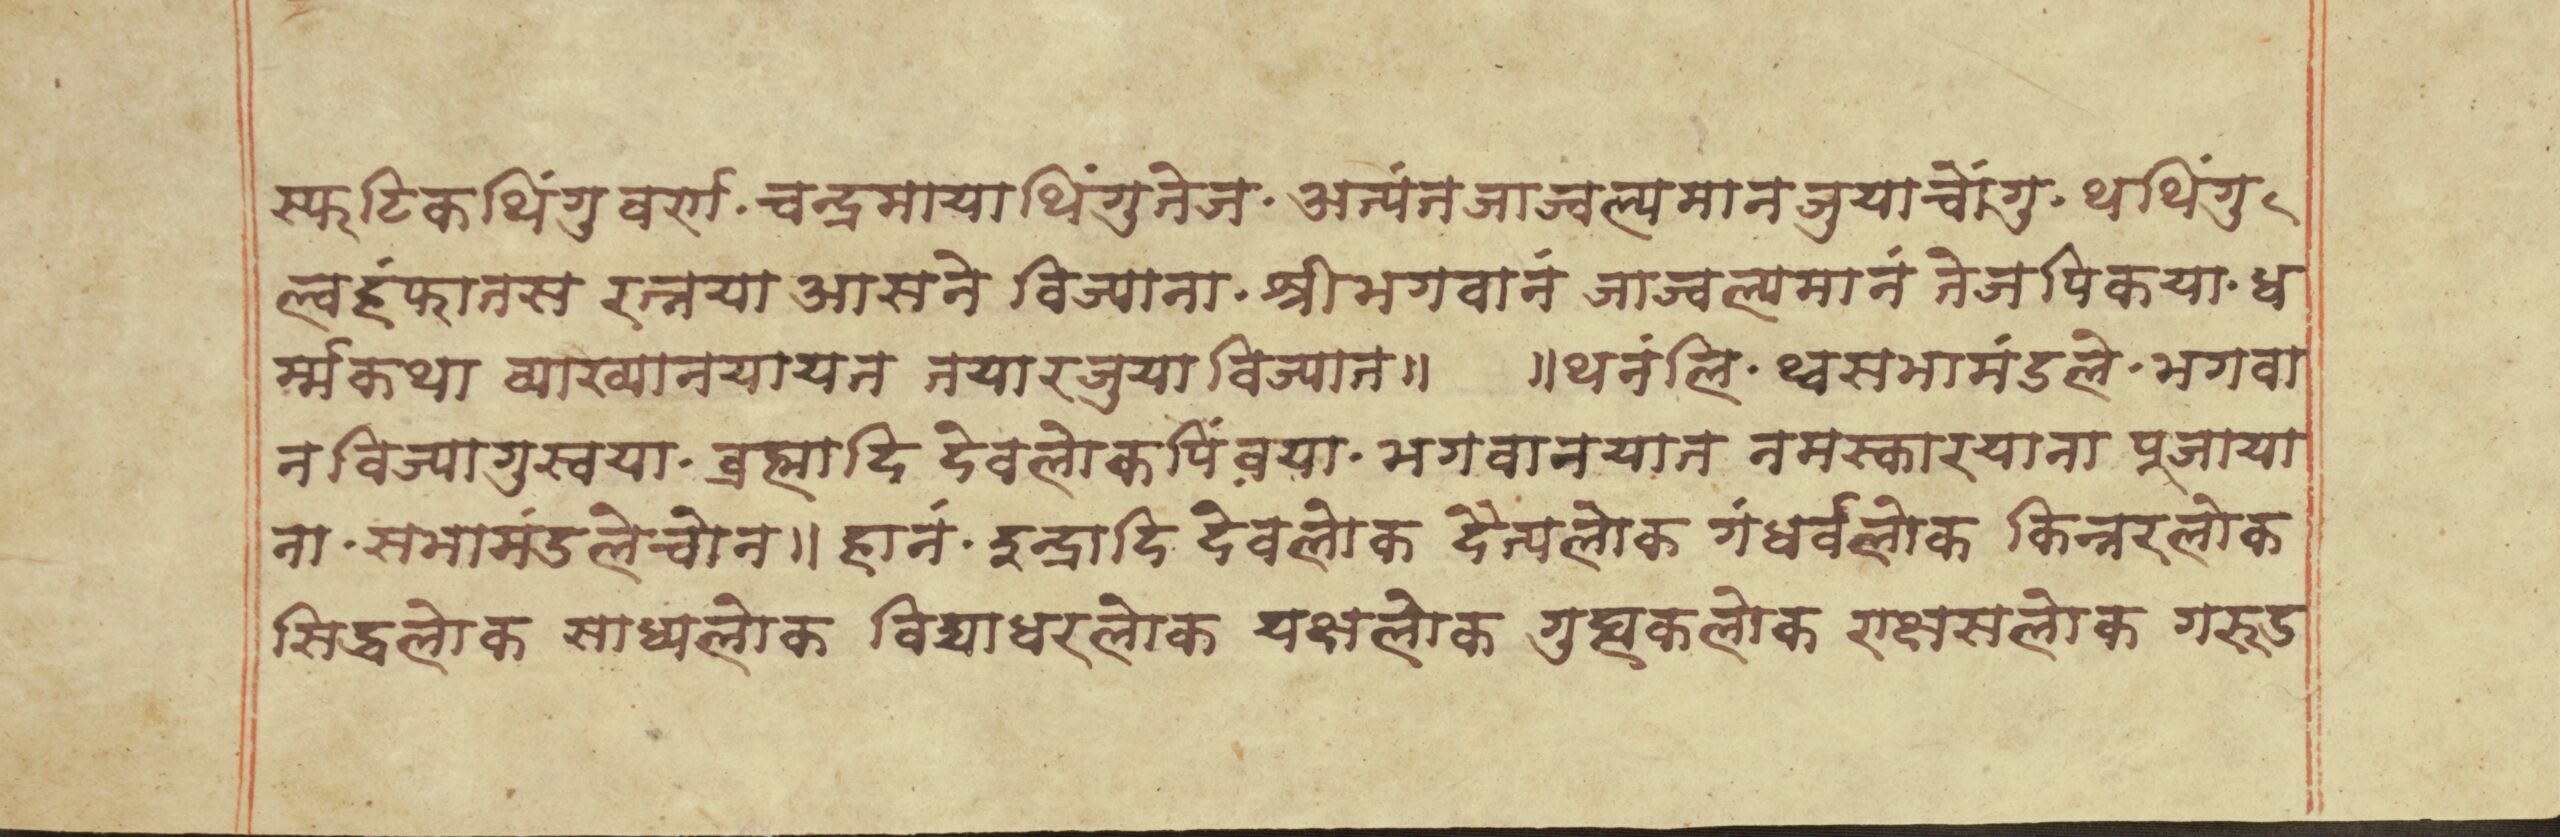 स्फटिकथिंगु वर्ण. चन्द्रमायाथिंगुतेज. अत्यंतजाज्वल्यमानजुयाच्वोंगु. थथिंगु
ल्वहंफातस रत्नया आसने विज्याना. श्रीभगवानं जाज्वल्यमानं तेजपिकया. ध
र्म्मकथा व्याख्यानयायत तयारजुयाविज्यात॥ ॥थनंलि. थ्वसभामंडले. भगवा
नविज्यागुस्वया. ब्रह्मादि देवलोकपिंवया. भगवानयात नमस्कारयाना पूजाया
ना. सभामंडलेच्वोन॥ हानं. इन्द्रादि देवलोक दैत्यलोक गंधर्वलोक किन्नरलोक
सिद्धलोक साध्यलोक विद्याधरलोक यक्षलोक गुह्यकलोक राक्षसलोक गरूड